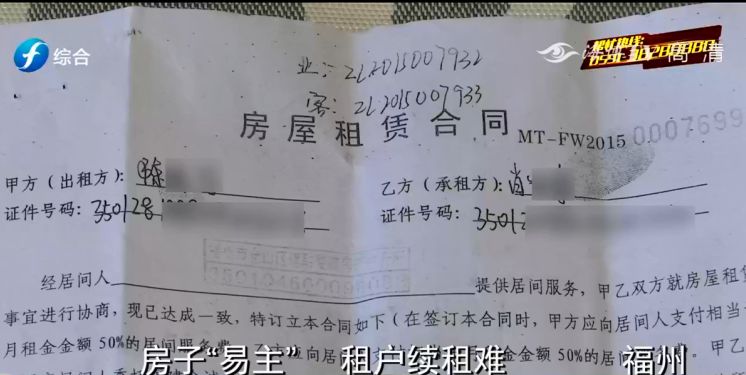 综合
高清
业：ZL2015007932
客：ZL2015007933
房屋租赁合同 MT-FW2015 0007699
甲方（出租方）：陈
乙方（承租方）：肖
证件号码：350128
证件号码：3501
经居间人 提供居间服务，甲乙双方就房屋租
事宜进行协商，现已达成一致，特订立本合同如下（在签订本合同时，甲方应向居间人支付相当
月租金金额50%的居间服务费，乙方应向居 金额50%的居间服务费。甲乙
房子“易主” 租户续租难 福州